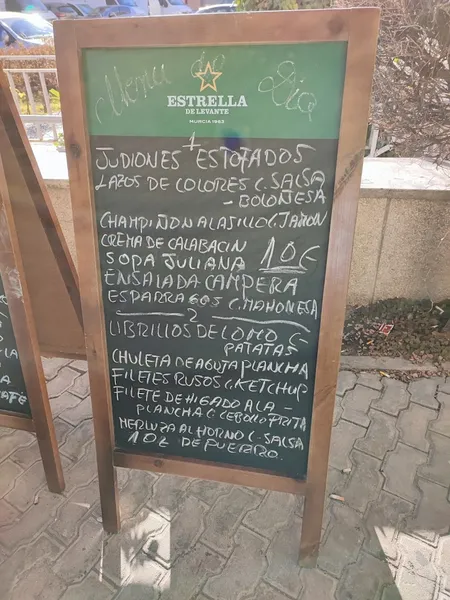 Menu de Dia
ESTRELLA
DE LEVANTE
MURCIA 1963
1
JUDIONES ESTOFADOS
LAZOS DE COLORES C. SALSA
- BOLOÑESA
CHAMPIÑON ALASILLO C. JAMON
CREMA DE CALABACIN
SOPA JULIANA 10€
ENSALADA CAMPERA
ESPARRAGOS C. MAHONESA
2
LIBRILLOS DE LOMO C
PATATAS
CHULETA DE AGUJA PLANCHA
FILETES RUSOS C. KETCHUP
FILETE DE HIGADO A LA -
PLANCHA C. CEBOLLA FRITA
MERLUZA AL HORNO C. SALSA
DE PUERRO
CAFE